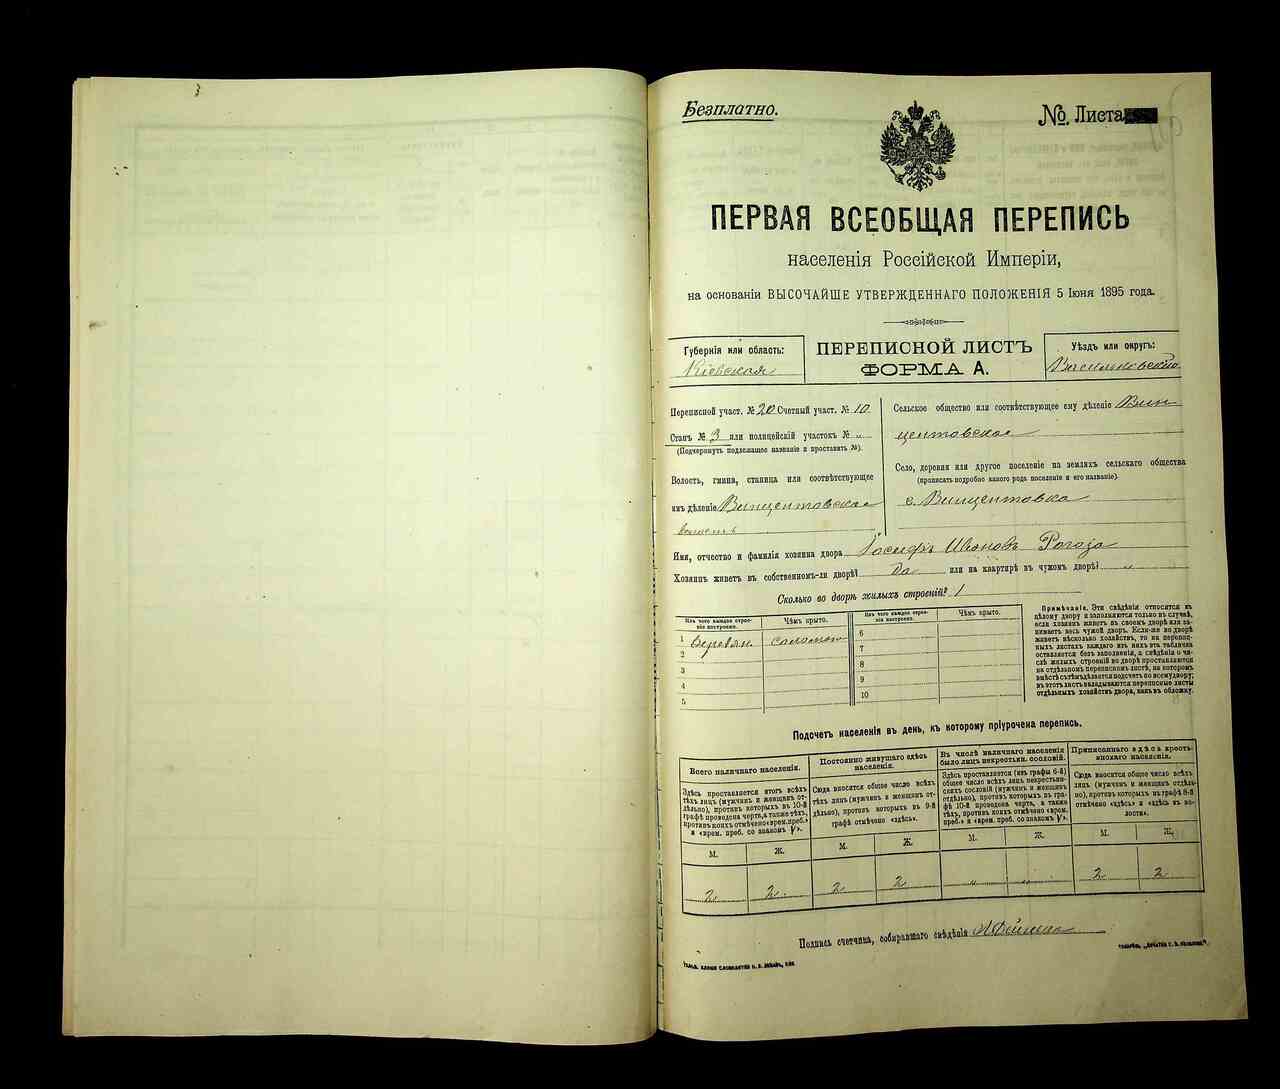 Безплатно.
№. Листа
ПЕРВАЯ ВСЕОБЩАЯ ПЕРЕПИСЬ
населенія Россійской Имперіи,
на основаніи ВЫСОЧАЙШЕ УТВЕРЖДЕННАГО ПОЛОЖЕНІЯ 5 Іюня 1895 года.
Губернія или область:
Кіевская
ПЕРЕПИСНОЙ ЛИСТЪ
ФОРМА А.
Уѣздъ или округъ:
Васильковскій
Переписной участ. № 20 Счетный участ. № 10
Станъ № 3 или полицейскій участокъ № „
(Подчеркнуть подлежащее названіе и проставить №).
Волость, гмина, станица или соотвѣтствующее
имъ дѣленіе Винцентовская
волость
Сельское общество или соотвѣтствующее ему дѣленіе Вин
центовское
Село, деревня или другое поселеніе на земляхъ сельскаго общества
(прописать подробно какого рода поселеніе и его названіе).
с. Винцентовка
Имя, отчество и фамилія хозяина двора Іосифъ Ивановъ Рогоза
Хозяинъ живетъ въ собственномъ-ли дворѣ? да или на квартирѣ въ чужомъ дворѣ? „
Сколько во дворѣ жилыхъ строеній? 1
Изъ чего каждое строе-
ніе построено.
Чѣмъ крыто.
Изъ чего каждое строе-
ніе построено.
Чѣмъ крыто.
1 Деревян. соломой
2
3
4
5
6
7
8
9
10
Примѣчаніе. Эти свѣдѣнія относятся къ
цѣлому двору и заполняются только въ случаѣ,
если хозяинъ живетъ въ своемъ дворѣ или за-
нимаетъ весь чужой дворъ. Если-же во дворѣ
живетъ нѣсколько хозяйствъ, то на перепис-
ныхъ листахъ каждаго изъ нихъ эта таблица
оставляется безъ заполненія, а свѣдѣнія о чи-
слѣ жилыхъ строеній во дворѣ проставляются
на отдѣльномъ переписномъ листѣ, на которомъ
вмѣстѣ съ тѣмъ дѣлается подсчетъ по всему двору;
въ этотъ листъ вкладываются переписные листы
отдѣльныхъ хозяйствъ двора, какъ въ обложку.
Подсчетъ населенія въ день, къ которому пріурочена перепись.
Всего наличнаго населенія.
Здѣсь проставляется итогъ всѣхъ
тѣхъ лицъ (мужчинъ и женщинъ от-
дѣльно), противъ которыхъ въ 10-й
графѣ проведена черта, а также тѣхъ,
противъ коихъ отмѣчено «врем. преб.»
и «врем. преб. со знакомъ V».
Постоянно живущаго здѣсь
населенія.
Сюда вносится общее число всѣхъ
тѣхъ лицъ (мужчинъ и женщинъ от-
дѣльно), противъ которыхъ въ 9-й
графѣ отмѣчено «здѣсь».
Въ числѣ наличнаго населенія
было лицъ некрестьян. сословій.
Здѣсь проставляется (изъ графы 6-й)
общее число всѣхъ лицъ некрестьян-
скихъ сословій (мужчинъ и женщинъ
отдѣльно), противъ которыхъ въ гра-
фѣ 10-й проведена черта, а также
тѣхъ, противъ коихъ отмѣчено «врем.
преб.» и «врем. преб. со знакомъ V».
Приписаннаго здѣсь кресть-
янскаго населенія.
Сюда вносится общее число всѣхъ
лицъ (мужчинъ и женщинъ отдѣль-
но), противъ которыхъ въ графѣ 8-й
отмѣчено «здѣсь» и «здѣсь въ во-
лости».
М. Ж. М. Ж. М. Ж. М. Ж.
2 2 2 2 „ „ 2 2
Подпись счетчика, собиравшаго свѣдѣнія